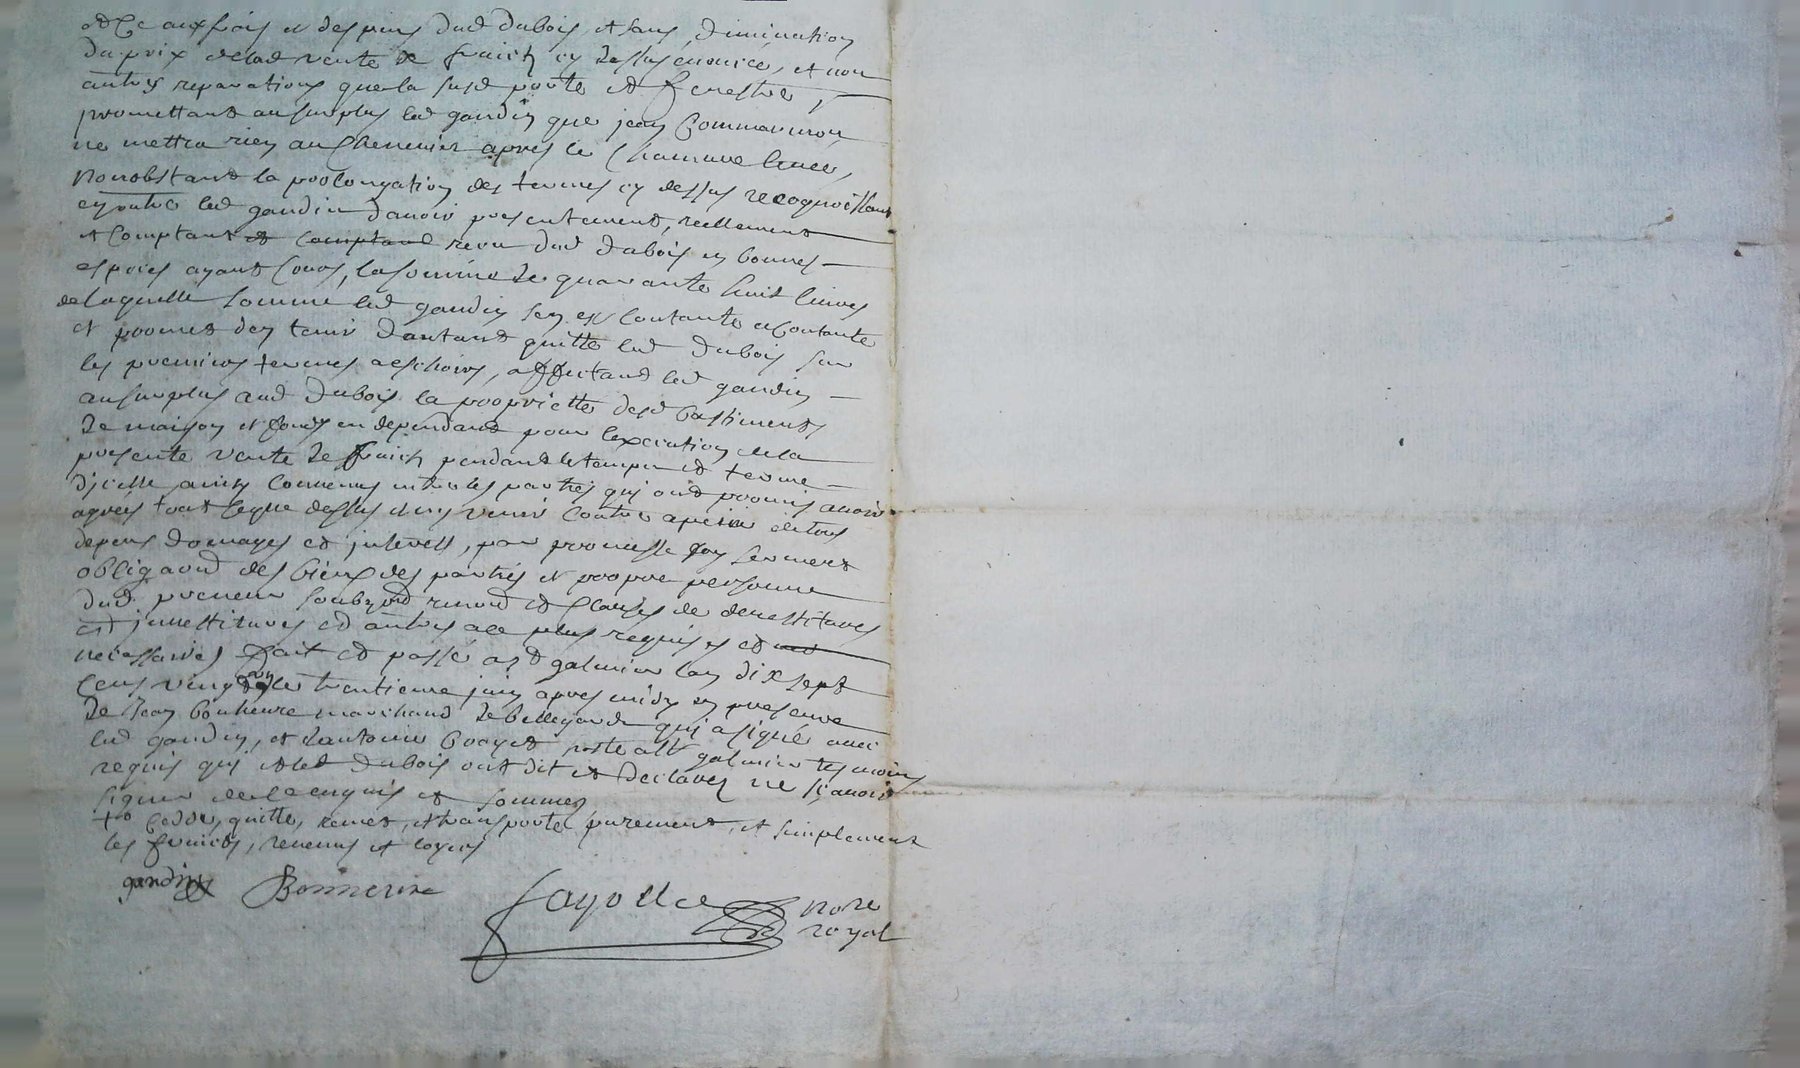 et ce aux frais et despens dud dubois, et sans diminution
du prix delad vente de fruicts cy dessus enoncée, et non
autres reparations que la susd porte et fenestre,
promettant au surplus led gaudin que jean
ne mettra rien au chenevier apres le chanvre levée,
nonobstant la prolongation des termes cy dessus recognoissant
en outre led gaudin d'avoir presentement, reellement
et comptant et comptant receu dud dubois en bonnes
especes ayant cours, la somme de quarante huit livres
de laquelle somme led gaudin sen est contanté et contante
et promet den tenir d'autant quitte led dubois sur
les premiers termes a eschoirs, affectant led gaudin
au surplus aud dubois la propriette desd bastiments
de maison et fonds en dependant pour lexecution de la
presente vente de fruicts pendant le temps et terme
d'icelle ainsy convenus entre les parties qui ont promis avoir
agreés tout ceque dessus et ny venir contre a peine de tous
depens domages et interests, par promesse foy serment
obligaond des biens des parties et propre personne
dud preneur et clauses de devestitures
et jnvestitures et autres a ce plus requises et
necessaires fait et passé a st galmier lan dix sept
cens vingt le trentieme juin apres midy en presence
de jean marchand de bellegarde qui a signé avec
led gaudin, et d'antoine st galmier tesmoins
requis qui et led dubois ont dit et declarez ne sçavoir
signer de ce enquis et sommez
+ cedde, quitte, remet, et transporte purement, et simplement
les fruicts, revenus et loyers
gaudin
royal